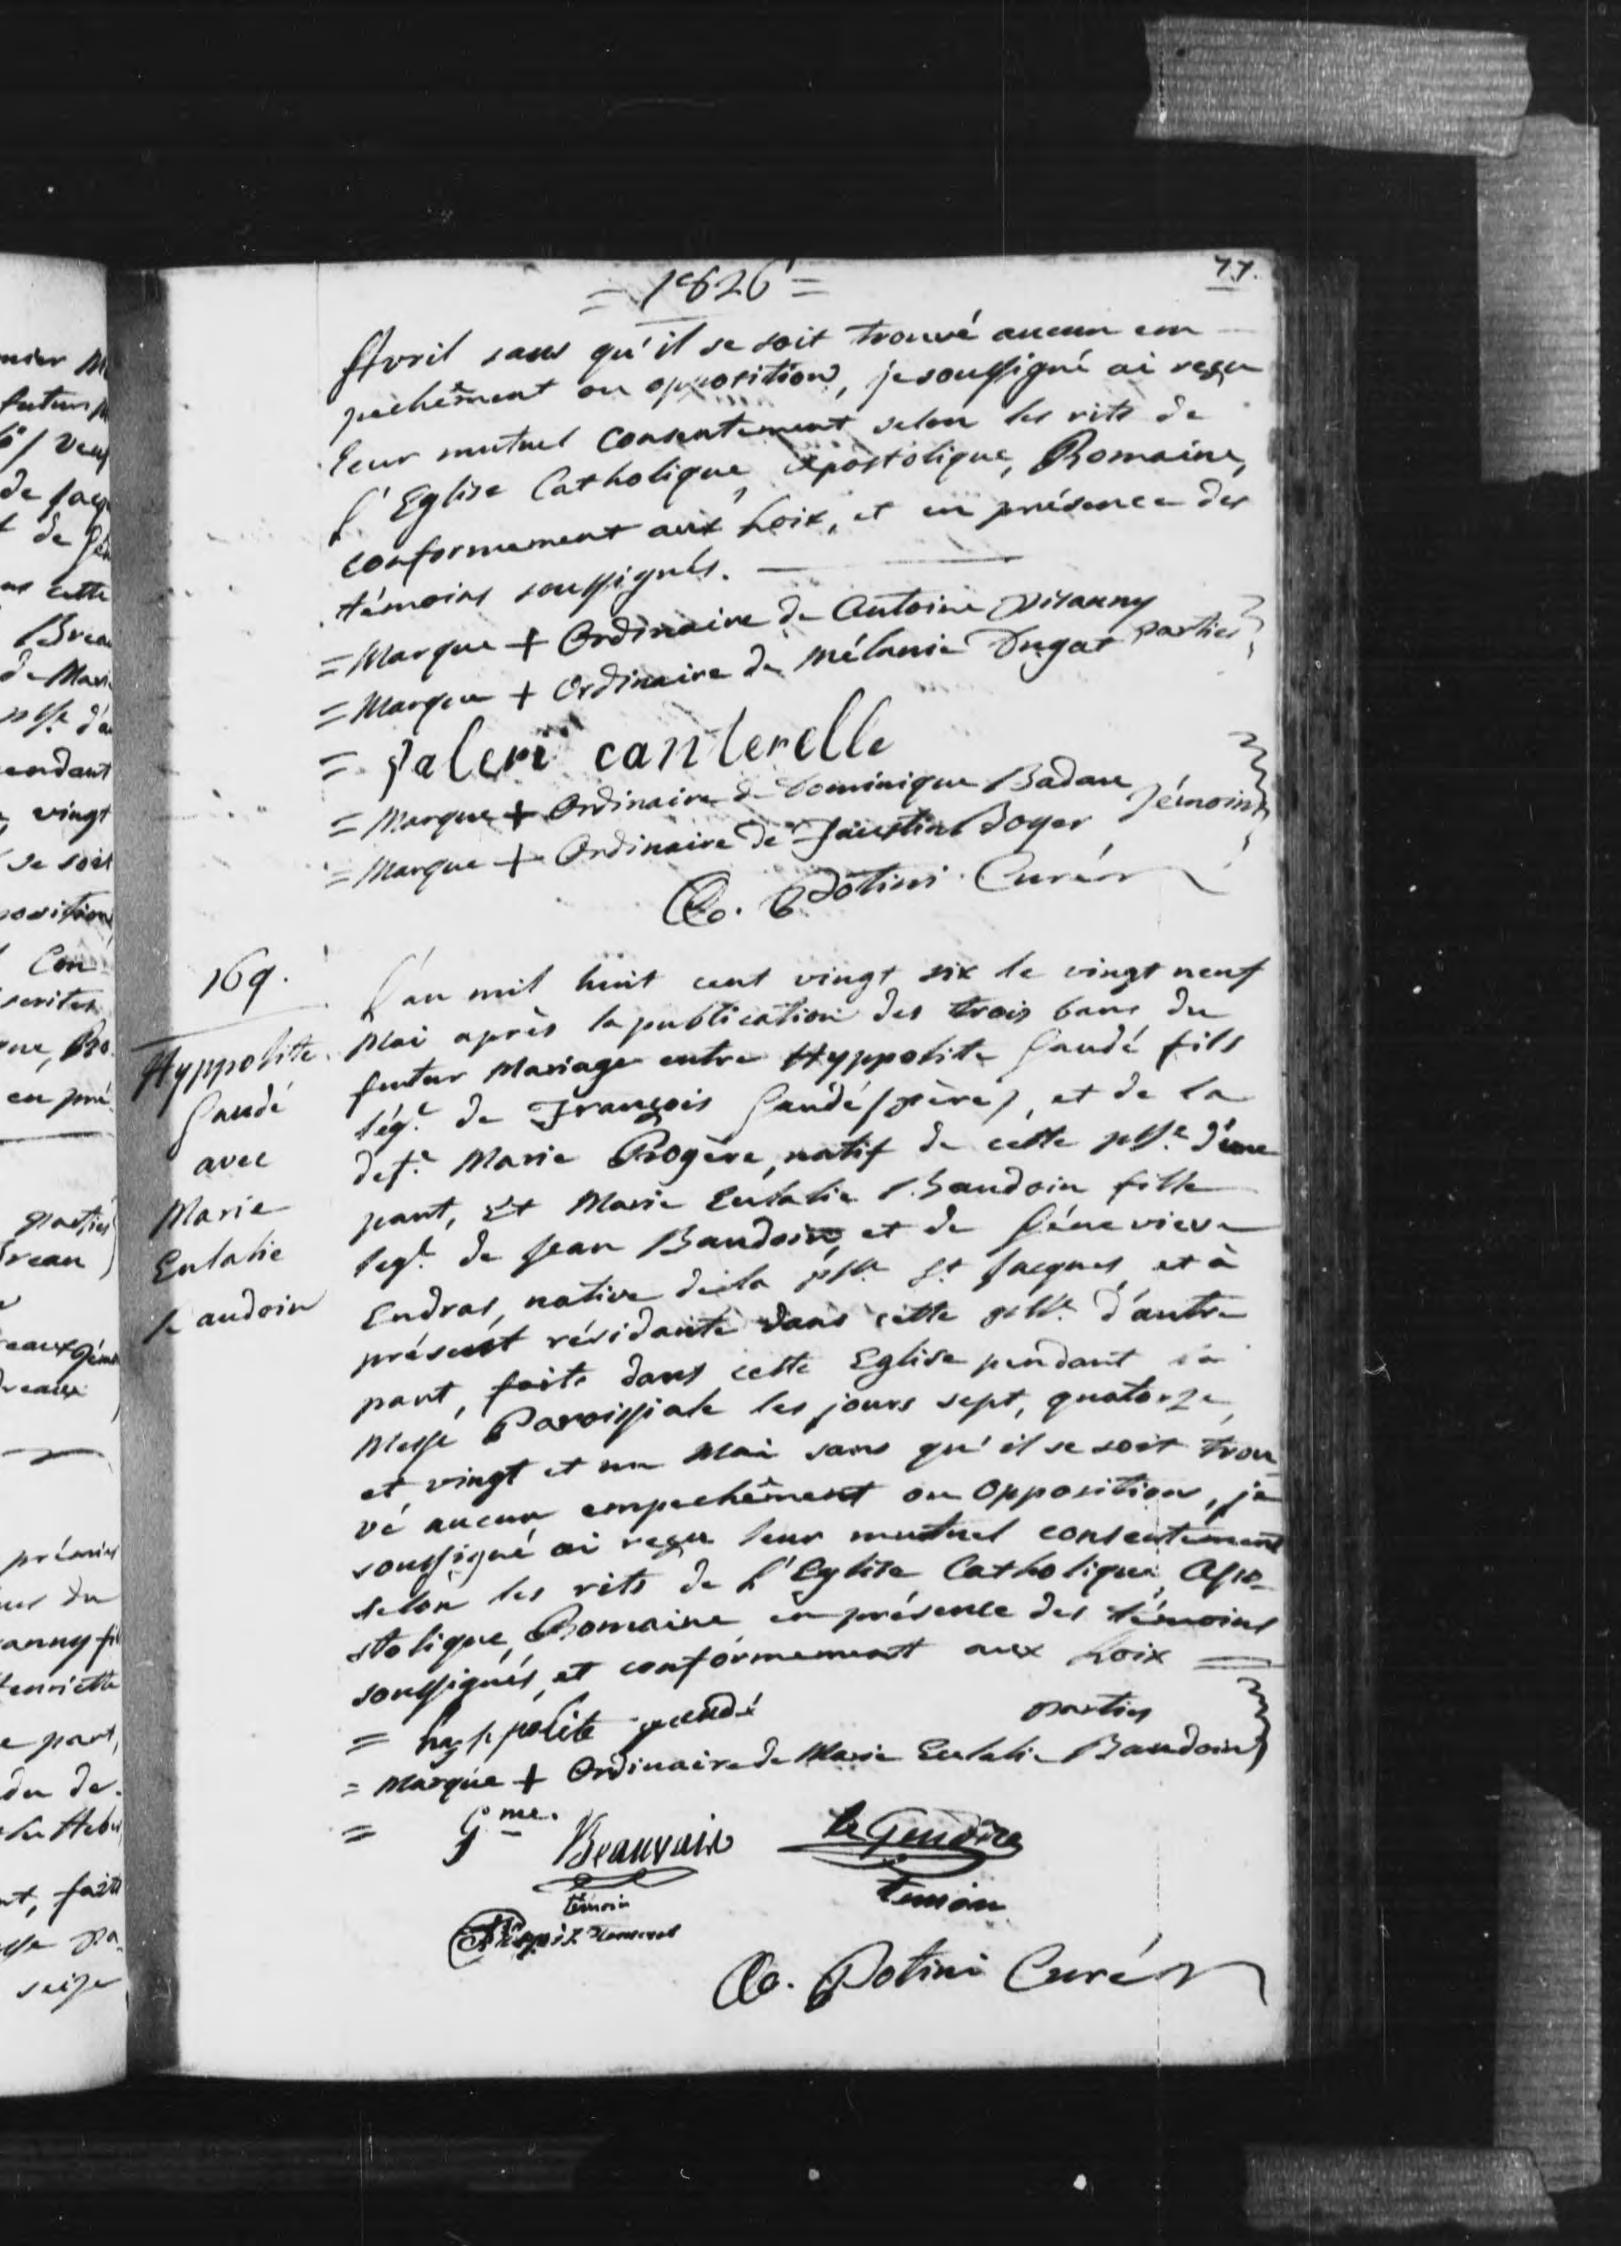 77.
= 1826 =
Avril sans qu'il se soit trouvé aucun em
pechêment ou opposition, je soussigné ai reçu
leur mutuel consentement selon les rits de
l'Eglise Catholique, Apostolique, Romaine,
conformement aux Loix, et en présence des
témoins soussignés.
= Marque + Ordinaire de Antoine
= Marque + Ordinaire de Mélanie Dugat parties
= Valeri canterelle
= Marque + Ordinaire de Dominique Badau
= Marque + Ordinaire de Faustin Boyer Témoins
Co. Potini Curé
169.
Hyppolite
Gaudé
avec
Marie
Eulalie
Baudoin
L'an mil huit cent vingt six le vingt neuf
Mai après la publication des trois bans du
futur Mariage entre Hyppolite Gaudé fils
lég.e de François Gaudé (père), et de la
def.e Marie Rogère, natif de cette psse. d'une
part, Et Marie Eulalie Baudoin fille
leg.e de Jean Baudoin, et de Génevieve
Endras, native de la psse St Jacques, et à
présent résidante dans cette psse. d'autre
part, faite dans cette Eglise pendant la
Messe Paroissiale les jours sept, quatorze,
et vingt et un Mai sans qu'il se soit trou
vé aucun empechêment ou Opposition, je
soussigné ai reçu leur mutuel consentement
selon les rits de L'Eglise Catholique, Apo-
stolique, Romaine en présence des témoins
soussignés, et conformement aux Loix =
= hyppolite gaudé parties
= Marque + Ordinaire de Marie Eulalie Baudoin
= Gme. Beauvais le Gendre
témoin temoin
Co. Potini Curé